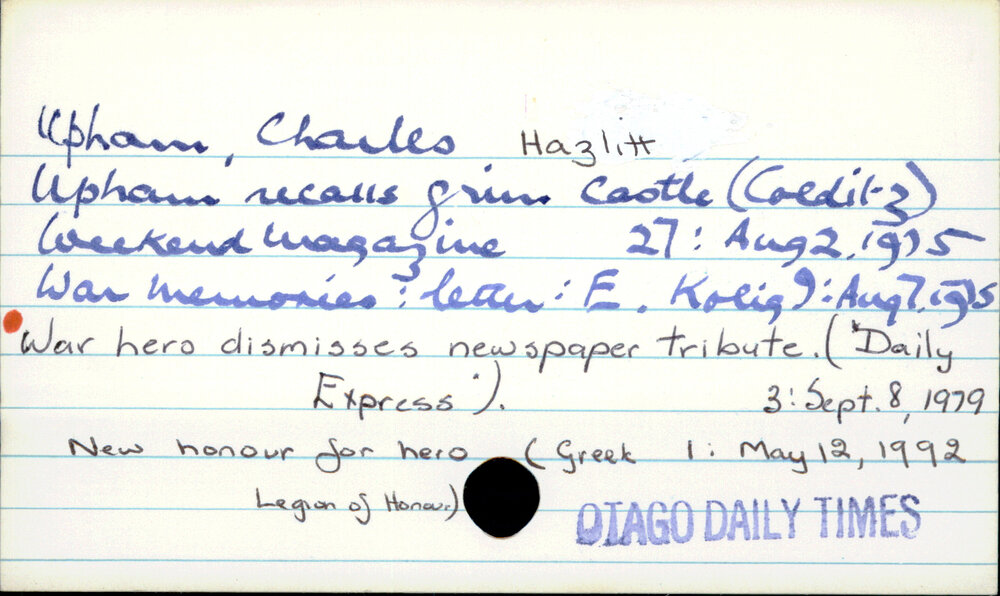 Upham, Charles Hazlitt
Upham recalls grim Castle (Colditz)
Weekend magazine 27: Aug 2, 1975
War memories: letter: E. Kolig 9: Aug 7, 1975
War hero dismisses newspaper tribute. ('Daily
Express'). 3: Sept. 8, 1979
New honour for hero (Greek 1: May 12, 1992
Legion of Honour)
OTAGO DAILY TIMES